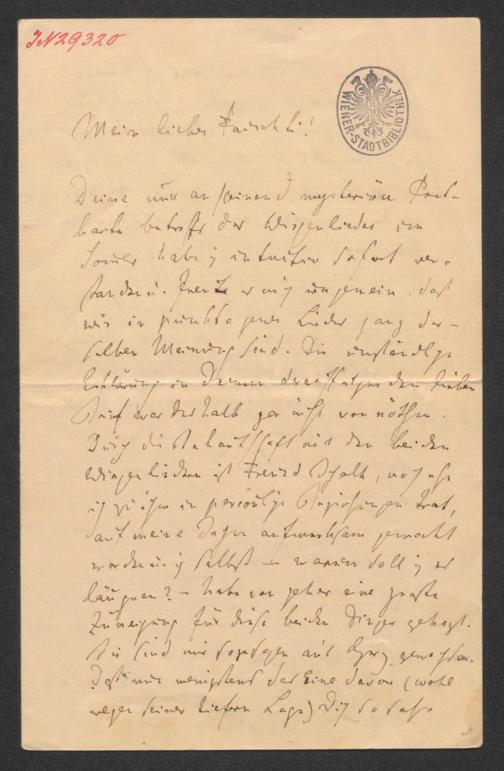 IN 29320
WIENER-STADTBIBLIOTHEK
Mein lieber Kauffmann!
Deine nur anscheinend mysteriöse Post-
karte betreffs des Wiegenliedes im
Sommer habe ich intuitiv sofort ver-
standen. Freute mich ungemein, daß
wir in punkto jener Lieder ganz der-
selben Meinung sind. Die umständliche
Erklärung in Deinem darauffolgenden lieben
Brief war deshalb gar nicht vonnöthen.
Durch die Bekanntschaft mit den beiden
Wiegenliedern ist Freund Schalk, noch ehe
ich zu ihm in persönliche Beziehungen trat,
auf meine Sachen aufmerksam gemacht
worden u. ich selbst – warum soll ich es
läugnen? – habe von jeher eine zarte
Zuneigung für diese beiden Dinger gehegt.
Sie sind mir sozusagen ans Herz gewachsen.
Daß mir wenigstens das Eine davon (wohl
wegen seiner tiefern Lage) Dich so sehr